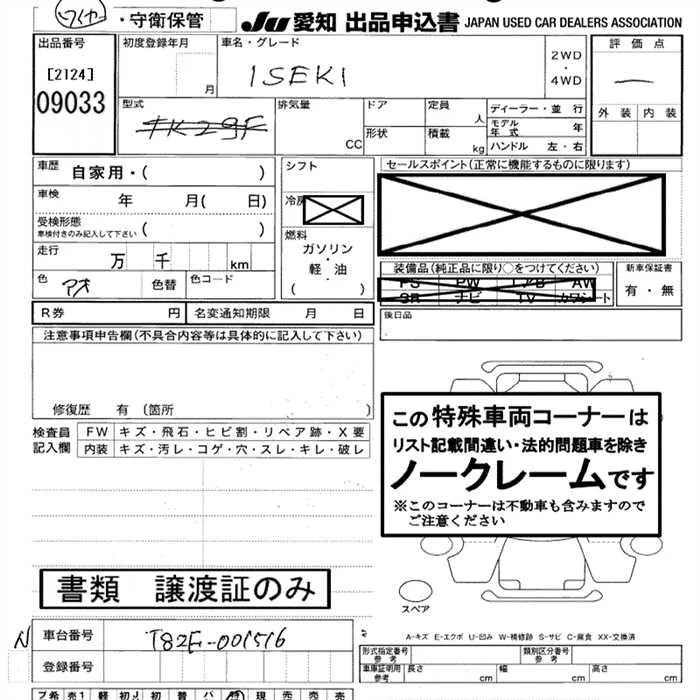 ・守衛保管 JU 愛知 出品申込書 JAPAN USED CAR DEALERS ASSOCIATION
出品番号 初度登録年月 車名・グレード 評価点
[2124] 月 ISEKI 2WD・4WD
09033 外装 内装
型式 排気量 ドア 定員 ディーラー・並行
CC 人 モデル年式 年
形状 積載 kg ハンドル 左・右
車歴 自家用・( ) シフト セールスポイント(正常に機能するものに限ります)
車検 年 月( 日) 冷房
受検形態
車検付きのみ記入して下さい ( ) 燃料
走行 万 千 km ガソリン・軽・油
( )
色 アオ 色替 色コード
装備品(純正品に限り○をつけてください) 新車保証書
PS PW エアB AW 有・無
SR ナビ TV カワシート
R券 円 名変通知期限 月 日 後日品
注意事項申告欄(不具合内容等は具体的に記入して下さい)
修復歴 有(箇所 )
検査員 FW キズ・飛石・ヒビ割・リペア跡・X要
記入欄 内装 キズ・汚レ・コゲ・穴・スレ・キレ・破レ
この特殊車両コーナーは
リスト記載間違い・法的問題車を除き
ノークレームです
※このコーナーは不動車も含みますので
ご注意ください
書類 譲渡証のみ
スペア
A-キズ E-エクボ U-凹み W-補修跡 S-サビ C-腐食 XX-交換済
N 車台番号 T82E-001516
登録番号
型式指定番号 参考 類別区分番号 参考
車庫証明用 参考 長さ cm 幅 cm 高さ cm